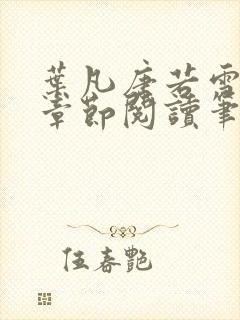 葉凡唐若雪
章節閱讀筆
伍春艷